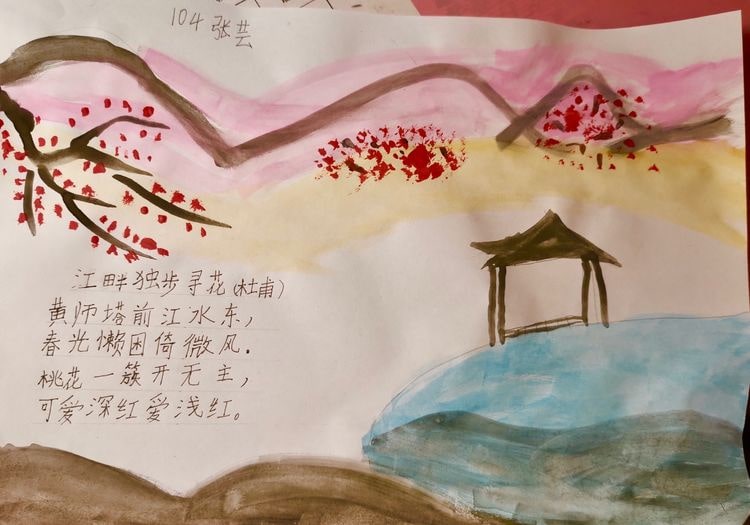 104 张芸
江畔独步寻花(杜甫)
黄师塔前江水东，
春光懒困倚微风．
桃花一簇开无主，
可爱深红爱浅红。